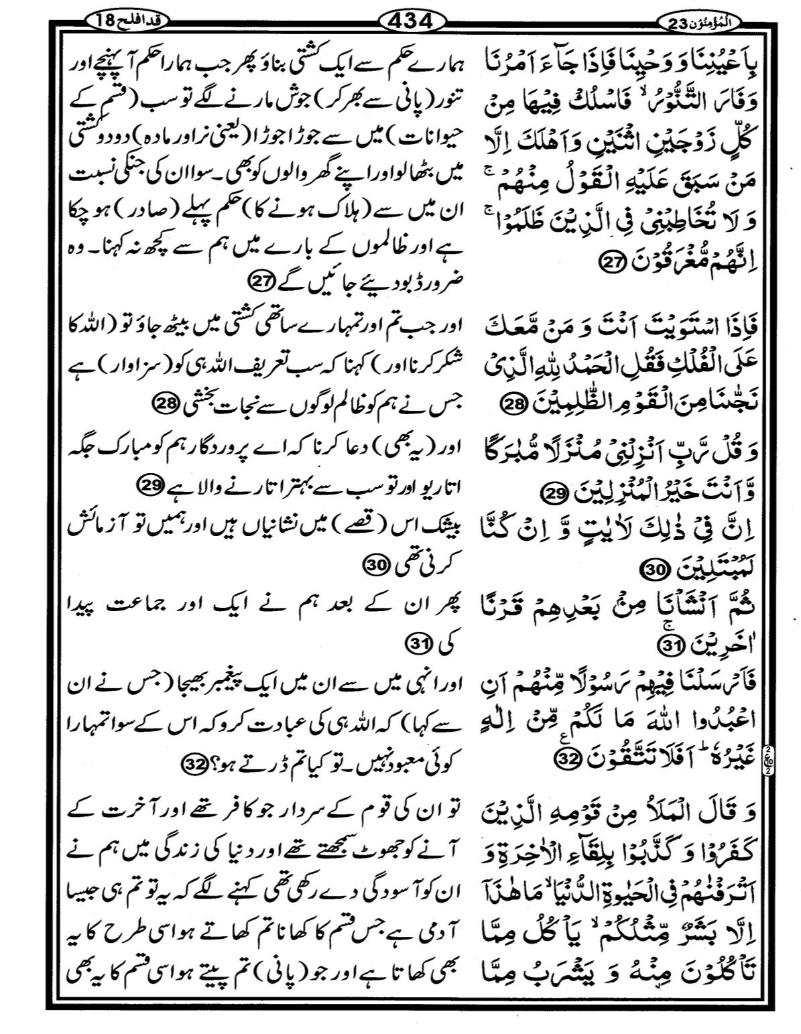 الْمُؤْمِنُوْن 23
434
قد افلح 18
بِاَعْيُنِنَا وَ وَحْيِنَا فَاِذَا جَآءَ اَمْرُنَا
وَفَارَ التَّنُّوْرُ ۙ فَاسْلُكْ فِيْهَا مِنْ
كُلٍّ زَوْجَيْنِ اثْنَيْنِ وَاَهْلَكَ اِلَّا
مَنْ سَبَقَ عَلَيْهِ الْقَوْلُ مِنْهُمْ ۚ
وَ لَا تُخَاطِبْنِيْ فِي الَّذِيْنَ ظَلَمُوْا ۚ
اِنَّهُمْ مُّغْرَقُوْنَ 27
فَاِذَا اسْتَوَيْتَ اَنْتَ وَ مَنْ مَّعَكَ
عَلَى الْفُلْكِ فَقُلِ الْحَمْدُ لِلّٰهِ الَّذِيْ
نَجّٰنَا مِنَ الْقَوْمِ الظّٰلِمِيْنَ 28
وَ قُلْ رَّبِّ اَنْزِلْنِيْ مُنْزَلًا مُّبٰرَكًا
وَّ اَنْتَ خَيْرُ الْمُنْزِلِيْنَ 29
اِنَّ فِيْ ذٰلِكَ لَاٰيٰتٍ وَّ اِنْ كُنَّا
لَمُبْتَلِيْنَ 30
ثُمَّ اَنْشَاْنَا مِنْۢ بَعْدِهِمْ قَرْنًا
اٰخَرِيْنَ ۚ 31
فَاَرْسَلْنَا فِيْهِمْ رَسُوْلًا مِّنْهُمْ اَنِ
اعْبُدُوا اللّٰهَ مَا لَكُمْ مِّنْ اِلٰهٍ
غَيْرُهٗ ؕ اَفَلَا تَتَّقُوْنَ ع 32
وَ قَالَ الْمَلَاُ مِنْ قَوْمِهِ الَّذِيْنَ
كَفَرُوْا وَ كَذَّبُوْا بِلِقَآءِ الْاٰخِرَةِ وَ
اَتْرَفْنٰهُمْ فِي الْحَيٰوةِ الدُّنْيَا ۙ مَا هٰذَاۤ
اِلَّا بَشَرٌ مِّثْلُكُمْ ۙ يَاْكُلُ مِمَّا
تَاْكُلُوْنَ مِنْهُ وَ يَشْرَبُ مِمَّا
ہمارے حکم سے ایک کشتی بناؤ پھر جب ہمارا حکم آ پہنچے اور
تنور (پانی سے بھر کر) جوش مارنے لگے تو سب (قسم کے
حیوانات) میں سے جوڑا جوڑا (یعنی نر اور مادہ) دو دو کشتی
میں بٹھا لو اور اپنے گھر والوں کو بھی۔ سوا ان کی جنکی نسبت
ان میں سے (ہلاک ہونے کا) حکم پہلے (صادر) ہو چکا
ہے اور ظالموں کے بارے میں ہم سے کچھ نہ کہنا۔ وہ
ضرور ڈبو دیئے جائیں گے 27
اور جب تم اور تمہارے ساتھی کشتی میں بیٹھ جاؤ تو (اللہ کا
شکر کرنا اور) کہنا کہ سب تعریف اللہ ہی کو (سزاوار) ہے
جس نے ہم کو ظالم لوگوں سے نجات بخشی 28
اور (یہ بھی) دعا کرنا کہ اے پروردگار ہم کو مبارک جگہ
اتاریو اور تو سب سے بہتر اتارنے والا ہے 29
بیشک اس (قصے) میں نشانیاں ہیں اور ہمیں تو آزمائش
کرنی تھی 30
پھر ان کے بعد ہم نے ایک اور جماعت پیدا
کی 31
اور انہی میں سے ان میں ایک پیغمبر بھیجا (جس نے ان
سے کہا) کہ اللہ ہی کی عبادت کرو کہ اس کے سوا تمہارا
کوئی معبود نہیں۔ تو کیا تم ڈرتے ہو؟ 32
تو ان کی قوم کے سردار جو کافر تھے اور آخرت کے
آنے کو جھوٹ سمجھتے تھے اور دنیا کی زندگی میں ہم نے
ان کو آسودگی دے رکھی تھی کہنے لگے کہ یہ تو تم ہی جیسا
آدمی ہے جس قسم کا کھانا تم کھاتے ہو اسی طرح کا یہ
بھی کھاتا ہے اور جو (پانی) تم پیتے ہو اسی قسم کا یہ بھی